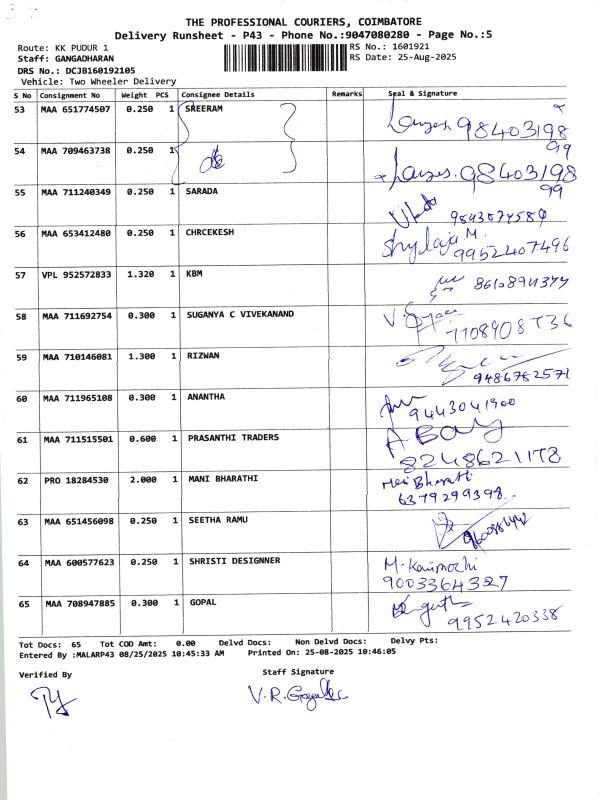 THE PROFESSIONAL COURIERS, COIMBATORE
Delivery Runsheet - P43 - Phone No.:9047080280 - Page No.:5
Route: KK PUDUR 1 RS No.: 1601921
Staff: GANGADHARAN RS Date: 25-Aug-2025
DRS No.: DCJB160192105
Vehicle: Two Wheeler Delivery
S No Consignment No Weight PCS Consignee Details Remarks Seal & Signature
53 MAA 651774507 0.250 1 SREERAM 98403198
99
54 MAA 709463738 0.250 1 98403198
99
55 MAA 711240349 0.250 1 SARADA
56 MAA 653412480 0.250 1 CHRCEKESH Shylaja M.
9952407496
57 VPL 952572833 1.320 1 KBM
58 MAA 711692754 0.300 1 SUGANYA C VIVEKANAND
59 MAA 710146081 1.300 1 RIZWAN 9486782571
60 MAA 711965108 0.300 1 ANANTHA 9443041900
61 MAA 711515501 0.600 1 PRASANTHI TRADERS
8248621178
62 PRO 18284530 2.000 1 MANI BHARATHI Mani Bharathi
6379299398
63 MAA 651456098 0.250 1 SEETHA RAMU
64 MAA 600577623 0.250 1 SHRISTI DESIGNNER M.
9003364327
65 MAA 708947885 0.300 1 GOPAL 9952420338
Tot Docs: 65 Tot COD Amt: 0.00 Delvd Docs: Non Delvd Docs: Delvy Pts:
Entered By :MALARP43 08/25/2025 10:45:33 AM Printed On: 25-08-2025 10:46:05
Verified By Staff Signature
V.R.